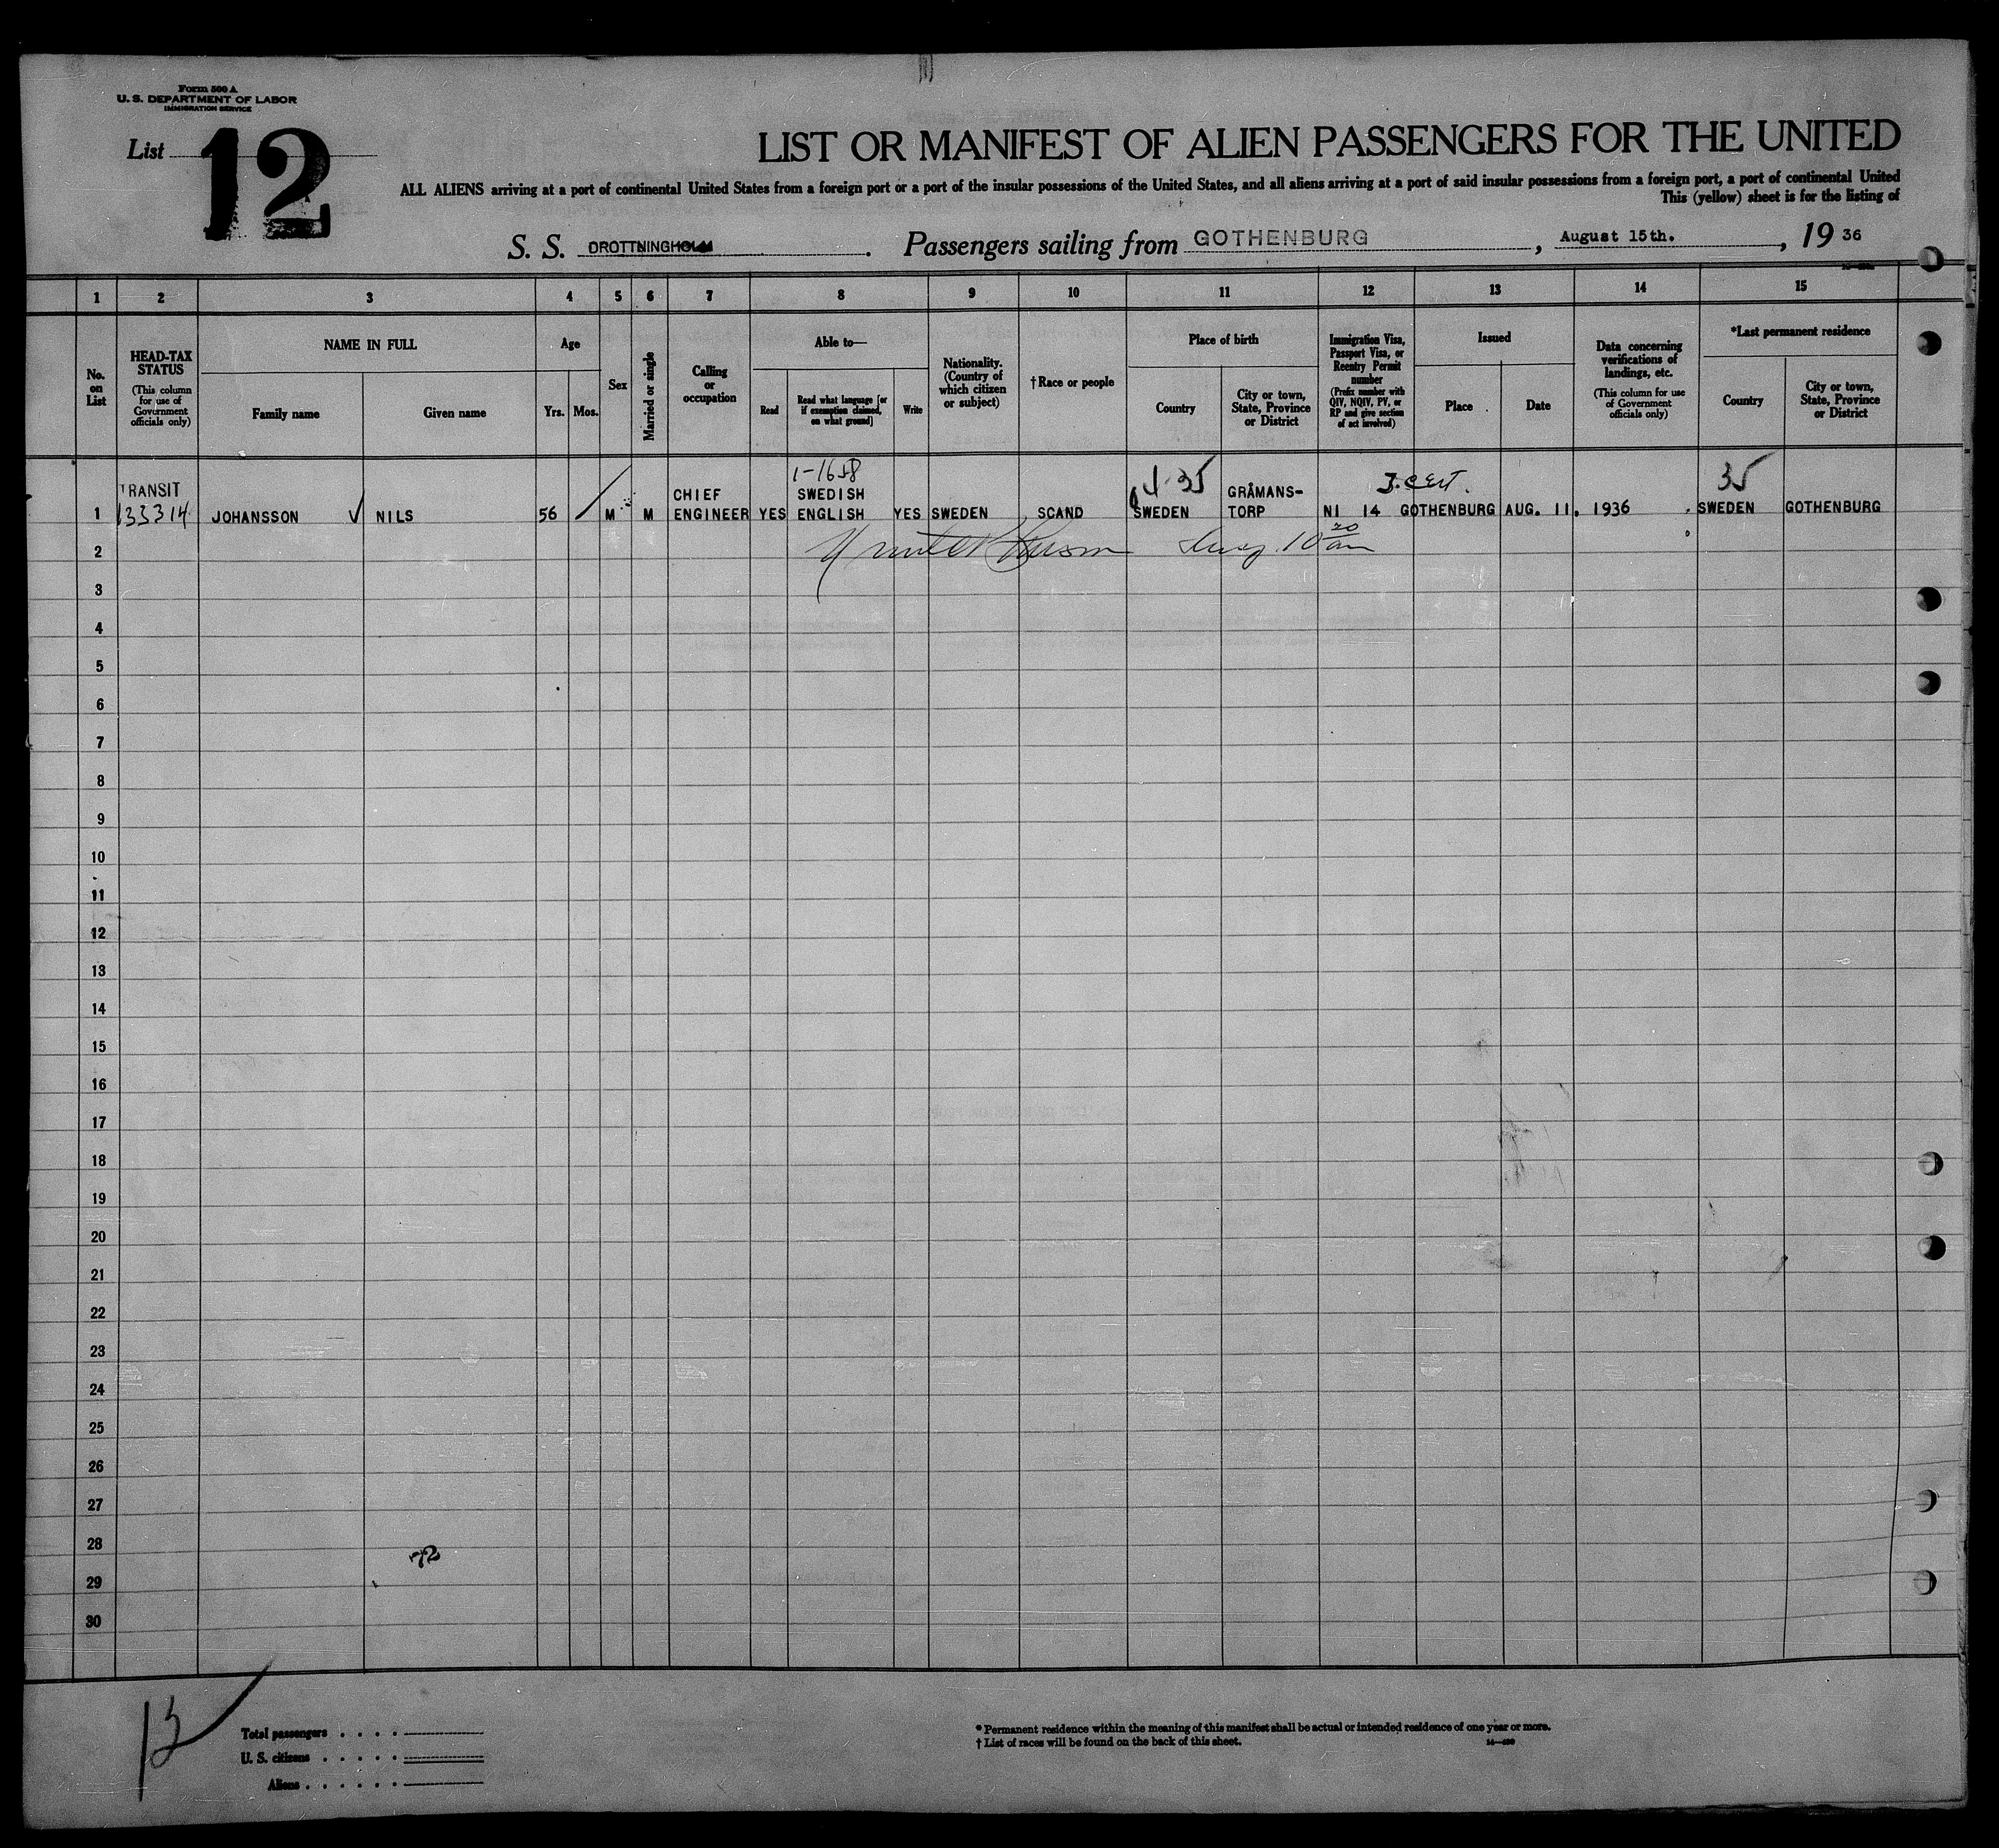 Form 500 A
U. S. DEPARTMENT OF LABOR
IMMIGRATION SERVICE
List 12
LIST OR MANIFEST OF ALIEN PASSENGERS FOR THE UNITED
ALL ALIENS arriving at a port of continental United States from a foreign port or a port of the insular possessions of the United States, and all aliens arriving at a port of said insular possessions from a foreign port, a port of continental United
This (yellow) sheet is for the listing of
S. S. DROTTNINGHOLM. Passengers sailing from GOTHENBURG, August 15th., 19 36
1 2 3 4 5 6 7 8 9 10 11 12 13 14 15
No. on List
HEAD-TAX STATUS
(This column for use of Government officials only)
NAME IN FULL
Family name
Given name
Age
Yrs. Mos.
Sex
Married or single
Calling or occupation
Able to—
Read
Read what language [or if exemption claimed, on what ground]
Write
Nationality. (Country of which citizen or subject)
†Race or people
Place of birth
Country
City or town, State, Province or District
Immigration Visa, Passport Visa, or Reentry Permit number
(Prefix number with QIV, NQIV, PV, or RP and give section of act involved)
Issued
Place
Date
Data concerning verifications of landings, etc.
(This column for use of Government officials only)
*Last permanent residence
Country
City or town, State, Province or District
TRANSIT CHIEF 1-1658 SWEDISH 35 GRÅMANS- T.Cert. 35
1 133314 JOHANSSON ✓ NILS 56 M M ENGINEER YES ENGLISH YES SWEDEN SCAND SWEDEN TORP NI 14 GOTHENBURG AUG. 11, 1936 SWEDEN GOTHENBURG
2 10 20 am
3
4
5
6
7
8
9
10
11
12
13
14
15
16
17
18
19
20
21
22
23
24
25
26
27
28 72
29
30
Total passengers . . . .
U. S. citizens . . . . .
Aliens . . . . . .
* Permanent residence within the meaning of this manifest shall be actual or intended residence of one year or more.
† List of races will be found on the back of this sheet.